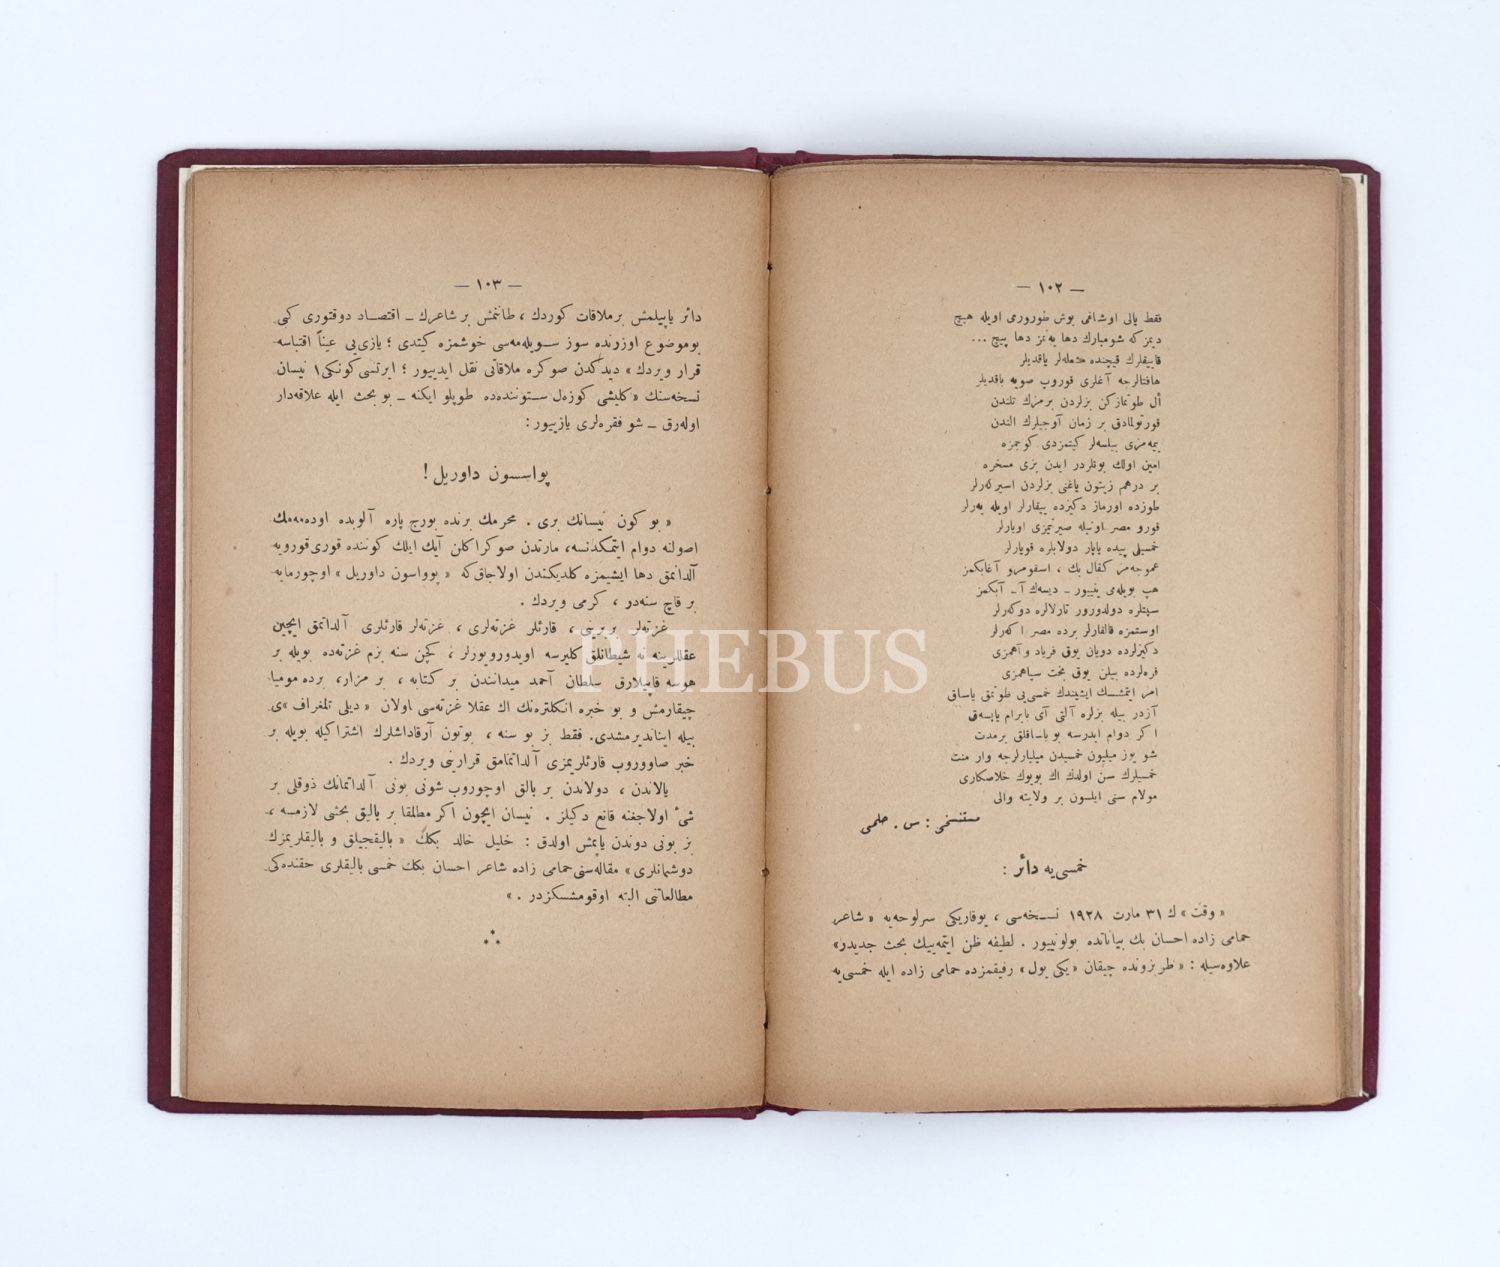 — ١٠٢ —
فقط یالی اوشاغی بوش طورورمی اویله هیچ
دیمز که شومبارك دها یه نمز دها پیچ ...
قاییقلرك قیچنده مشعله لر یاقدیلر
هافتالرجه آغلری قوروب صویه باقدیلر
أل طوتمازکن بزلردن برمزك تلندن
قورتولمادق بر زمان آوجیلرك الندن
ییه مزی بیلسه لر کیتمزدی کوجمزه
امین اولك بونلردر ایدن بزی مسخره
بر درهم زیتون یاغنی بزلردن اسیرکه رلر
طوزده اورماز دکیزده بیقارلر اویله یه رلر
قورو مصر اونیله صیرتمزی اوبارلر
خمسیلی پیده یاپار دولابلره قویارلر
عموجه مز کفال بك ، اسقومرو آغابکمز
هپ بویله می یینییور ـ دیسه ك آ ـ آبکمز
سپتلره دولدورور تارلالره دوکه رلر
اوستمزه قالقارلر برده مصر اکه رلر
دکیزلرده دویان یوق فریاد و آهمزی
قره لرده بیلن یوق بخت سیاهمزی
امر ایتمشسك ایشیتدك خمسی یی طوتمق یاساق
آزدر بیله بزلره آلتی آی بایرام یاپسه ق
اکر دوام ایدرسه بو یاساقلق برمدت
شو یوز میلیون خمسیدن میلیارلرجه وار منت
خمسیلرك سن اولدك اك بویوك خلاصکاری
مولام سنی ایلسون بر ولایته والی
مستنسخی : س . حلمی
خمسی یه دائر :
« وقت » ك ٣١ مارت ١٩٢٨ نسخه سی ، یوقاریکی سرلوحه یه « شاعر
حمامی زاده احسان بك بیاناتده بولونییور . لطیفه ظن ایتمه ییك بحث جدیدر»
علاوه سیله : « طربزونده چیقان «یکی یول» رفیقمزده حمامی زاده ایله خمسی یه
— ١٠٣ —
دائر یاپیلمش برملاقات کوردك ، طانمش بر شاعرك ـ اقتصاد دوقتوری کبی
بوموضوع اوزرنده سوز سویله مه سی خوشمزه کیتدی ؛ یازی یی عیناً اقتباسه
قرار ویردك » دیدکدن صوکره ملاقاتی نقل ایدییور ؛ ایرتسی کونکی ١ نیسان
نسخه سنك «کلیشی کوزه ل ستوننده ده طوپلو ایکنه ـ بو بحث ایله علاقه دار
اوله رق ـ شو فقره لری یازییور :
پواسسون داوریل !
« بو کون نیسانك بری . محرمك برنده بورج پاره آلوبده اوده مه مك
اصولنه دوام ایتمکدنسه، مارتدن صوکراکلن آیك ایلك کوننده قوری قورویه
آلدانمق دها ایشیمزه کلدیکندن اولاجاق که « پوواسون داوریل » اوچورمایه
بر قاچ سنه در ، کرمی ویردك .
غزته لر بربرینی ، قارئلر غزته لری ، غزته لر قارئلری آلداتمق ایچین
عقللرینه نه شیطانلق کلیرسه اویدورویورلر ، کچن سنه بزم غزته ده بویله بر
هوسه قاپیلارق سلطان آحمد میدانندن بر کتابه ، بر مزار، برده مومیا
چیقارمش و بو خبره انکلتره نك اك عقلا غزته سی اولان « دیلی تلغراف »ی
بیله ایناندیرمشدی. فقط بز بو سنه ، بوتون آرقاداشلرك اشتراکیله بویله بر
خبر صاووروب قارئلریمزی آلداتمامق قرارینی ویردك .
یالاندن ، دولاندن بر بالق اوچوروب شونی بونی آلداتمانك ذوقلی بر
شیٴ اولاجغنه قانع دکیلز . نیسان ایچون اکر مطلقا بر بالیق بحثی لازمسه ،
بز بونی دوندن یاپمش اولدق : خلیل خالد بکك « بالیقجیلق و بالیقلریمزك
دوشمانلری» مقاله سنی حمامی زاده شاعر احسان بکك خمسی بالیقلری حقنده کی
مطالعاتنی البته اوقومشسکزدر . »
⁂
PHEBUS